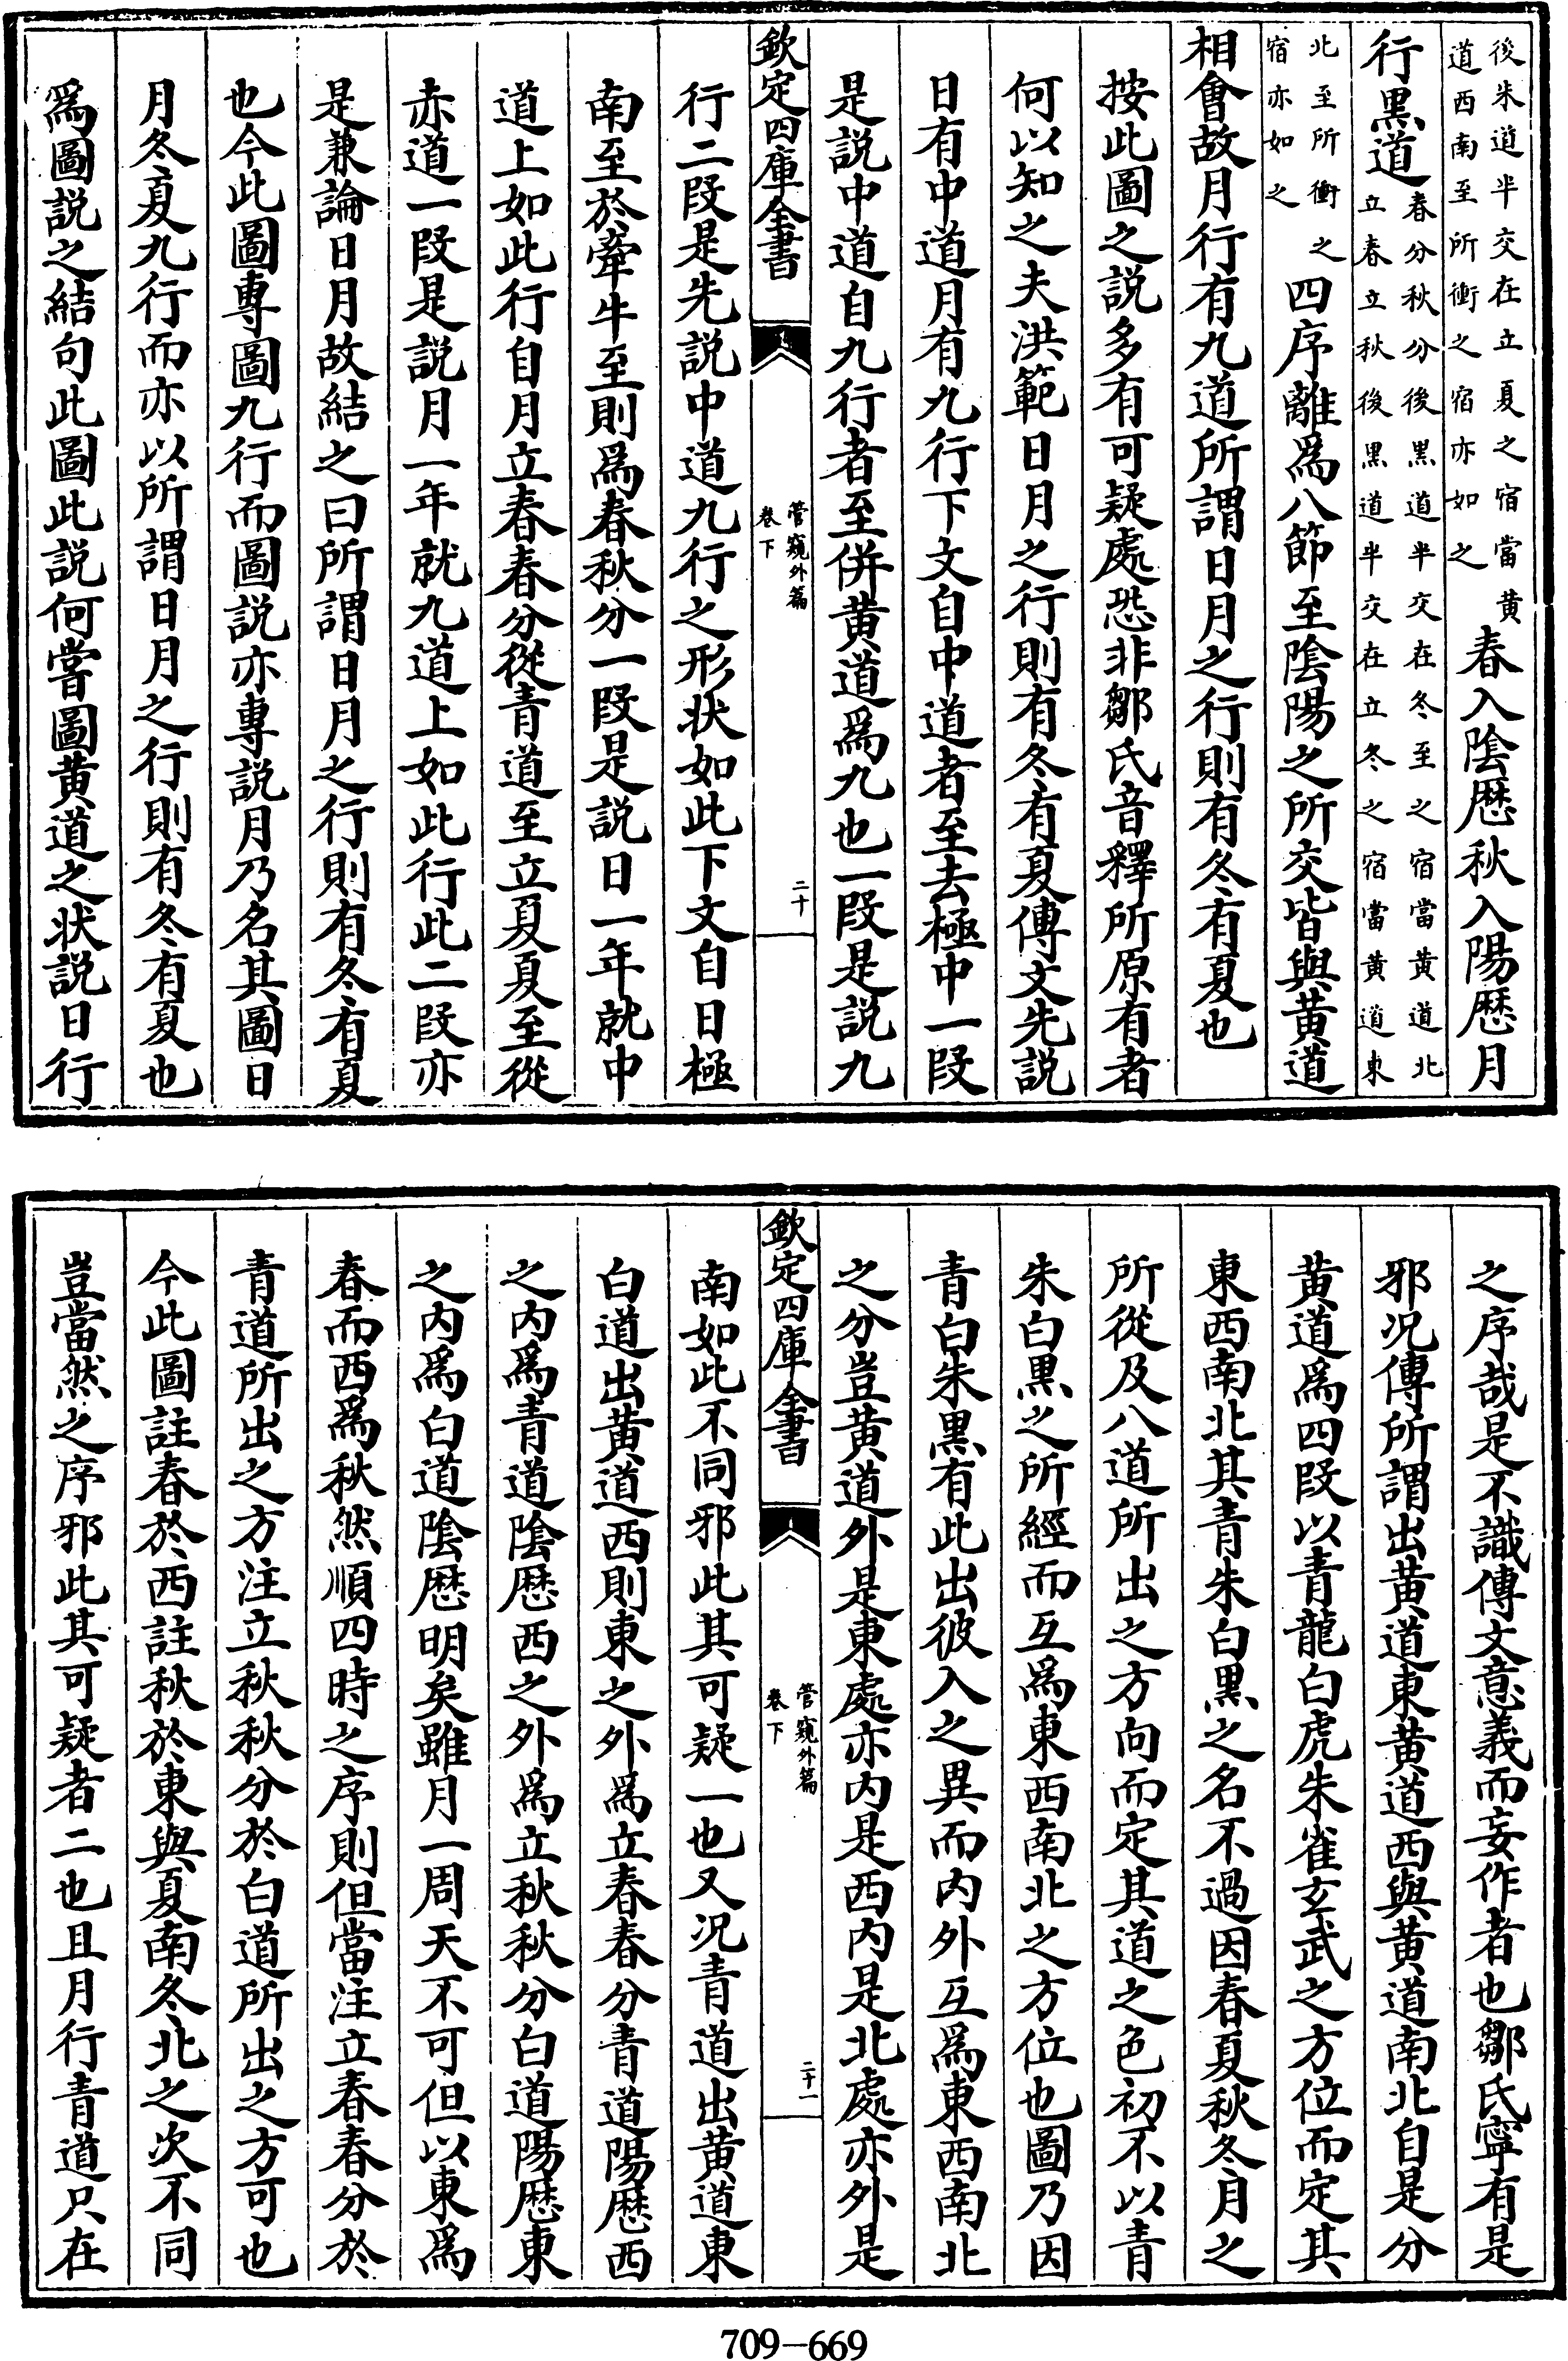 後朱道半交在立夏之宿當黄
道西南至所衝之宿亦如之
春入隂厯秋入陽厯月
行黒道
春分秋分後黒道半交在冬至之宿當黄道北
立春立秋後黒道半交在立冬之宿當黄道東
北至所衝之
宿亦如之
四序離爲八節至隂陽之所交皆與黄道
相會故月行有九道所謂日月之行則有冬有夏也
按此圖之説多有可疑處恐非鄒氏音釋所原有者
何以知之夫洪範日月之行則有冬有夏傳文先説
日有中道月有九行下文自中道者至去極中一段
是説中道自九行者至併黄道爲九也一段是説九
欽定四庫全書
管窺外篇
卷下
二十
行二段是先説中道九行之形狀如此下文自日極
南至於牽牛至則爲春秋分一段是説日一年就中
道上如此行自月立春春分從青道至立夏夏至從
赤道一段是説月一年就九道上如此行此二段亦
是兼論日月故結之曰所謂日月之行則有冬有夏
也今此圖專圖九行而圖説亦專説月乃名其圖曰
月冬夏九行而亦以所謂日月之行則有冬有夏也
爲圖説之結句此圖此説何嘗圖黄道之狀説日行
之序哉是不識傳文意義而妄作者也鄒氏寧有是
邪况傳所謂出黄道東黄道西與黄道南北自是分
黄道爲四段以青龍白虎朱雀玄武之方位而定其
東西南北其青朱白黒之名不過因春夏秋冬月之
所從及八道所出之方向而定其道之色初不以青
朱白黒之所經而互爲東西南北之方位也圖乃因
青白朱黒有此出彼入之異而内外互爲東西南北
之分豈黄道外是東處亦内是西内是北處亦外是
欽定四庫全書
管窺外篇
卷下
二十一
南如此不同邪此其可疑一也又况青道出黄道東
白道出黄道西則東之外爲立春春分青道陽厯西
之内爲青道隂厯西之外爲立秋秋分白道陽厯東
之内爲白道隂厯明矣雖月一周天不可但以東爲
春而西爲秋然順四時之序則但當注立春春分於
青道所出之方注立秋秋分於白道所出之方可也
今此圖註春於西註秋於東與夏南冬北之次不同
豈當然之序邪此其可疑者二也且月行青道只在
709-669